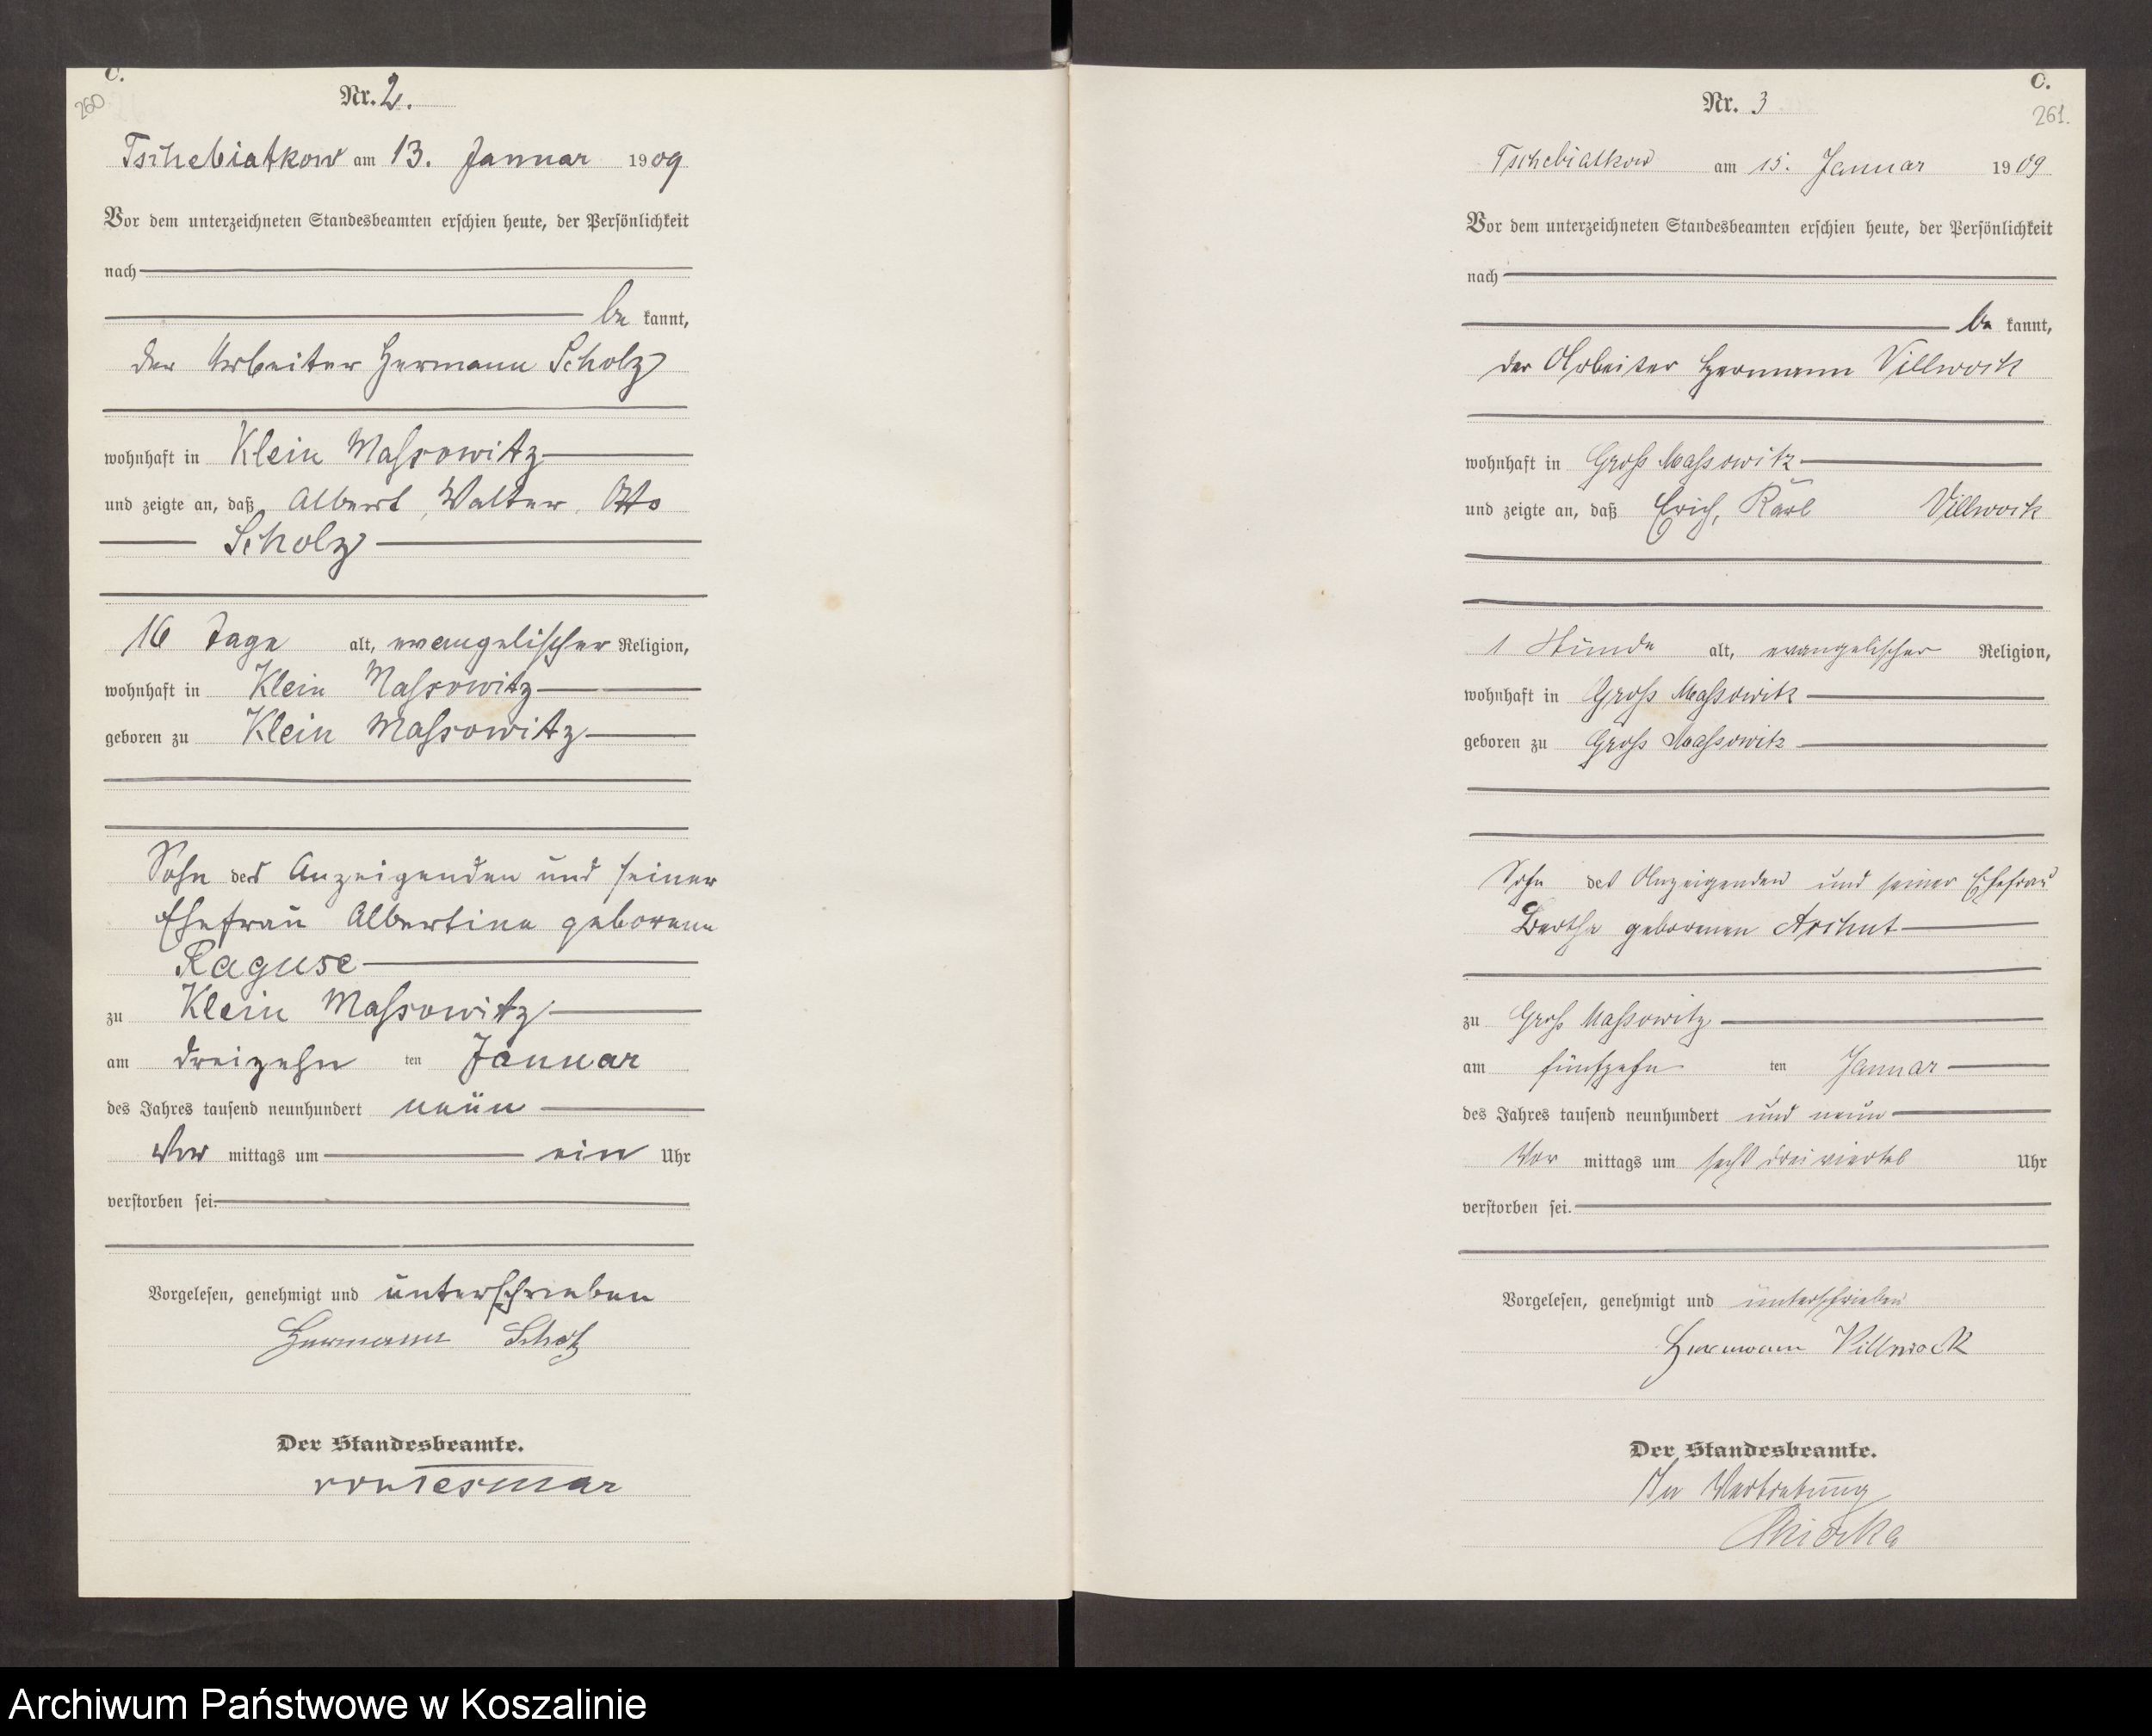 C.
260
Nr. 2.
Tschebiatkow am 13. Januar 1909
Vor dem unterzeichneten Standesbeamten erschien heute, der Persönlichkeit
nach
be kannt,
der Arbeiter Hermann Scholz
wohnhaft in Klein Massowitz
und zeigte an, daß Albert, Walter, Otto
Scholz
16 Tage alt, evangelischer Religion,
wohnhaft in Klein Massowitz
geboren zu Klein Massowitz
Sohn des Anzeigenden und seiner
Ehefrau Albertine geborene
Raguse
zu Klein Massowitz
am dreizehn ten Januar
des Jahres tausend neunhundert neun
Vor mittags um ein Uhr
verstorben sei.
Vorgelesen, genehmigt und unterschrieben
Hermann Scholz
Der Standesbeamte.
von Tesmar
C.
261.
Nr. 3
Tschebiatkow am 15. Januar 1909
Vor dem unterzeichneten Standesbeamten erschien heute, der Persönlichkeit
nach
be kannt,
der Arbeiter Hermann Villwock
wohnhaft in Gross Massowitz
und zeigte an, daß Erich, Karl Villwock
1 Stunde alt, evangelischer Religion,
wohnhaft in Gross Massowitz
geboren zu Gross Massowitz
Sohn des Anzeigenden und seiner Ehefrau
Berthe geborenen
zu Gross Massowitz
am fünfzehn ten Januar
des Jahres tausend neunhundert und neun
Vor mittags um sechs dreiviertel Uhr
verstorben sei.
Vorgelesen, genehmigt und unterschrieben
Hermann Villwock
Der Standesbeamte.
In Vertretung
Archiwum Państwowe w Koszalinie